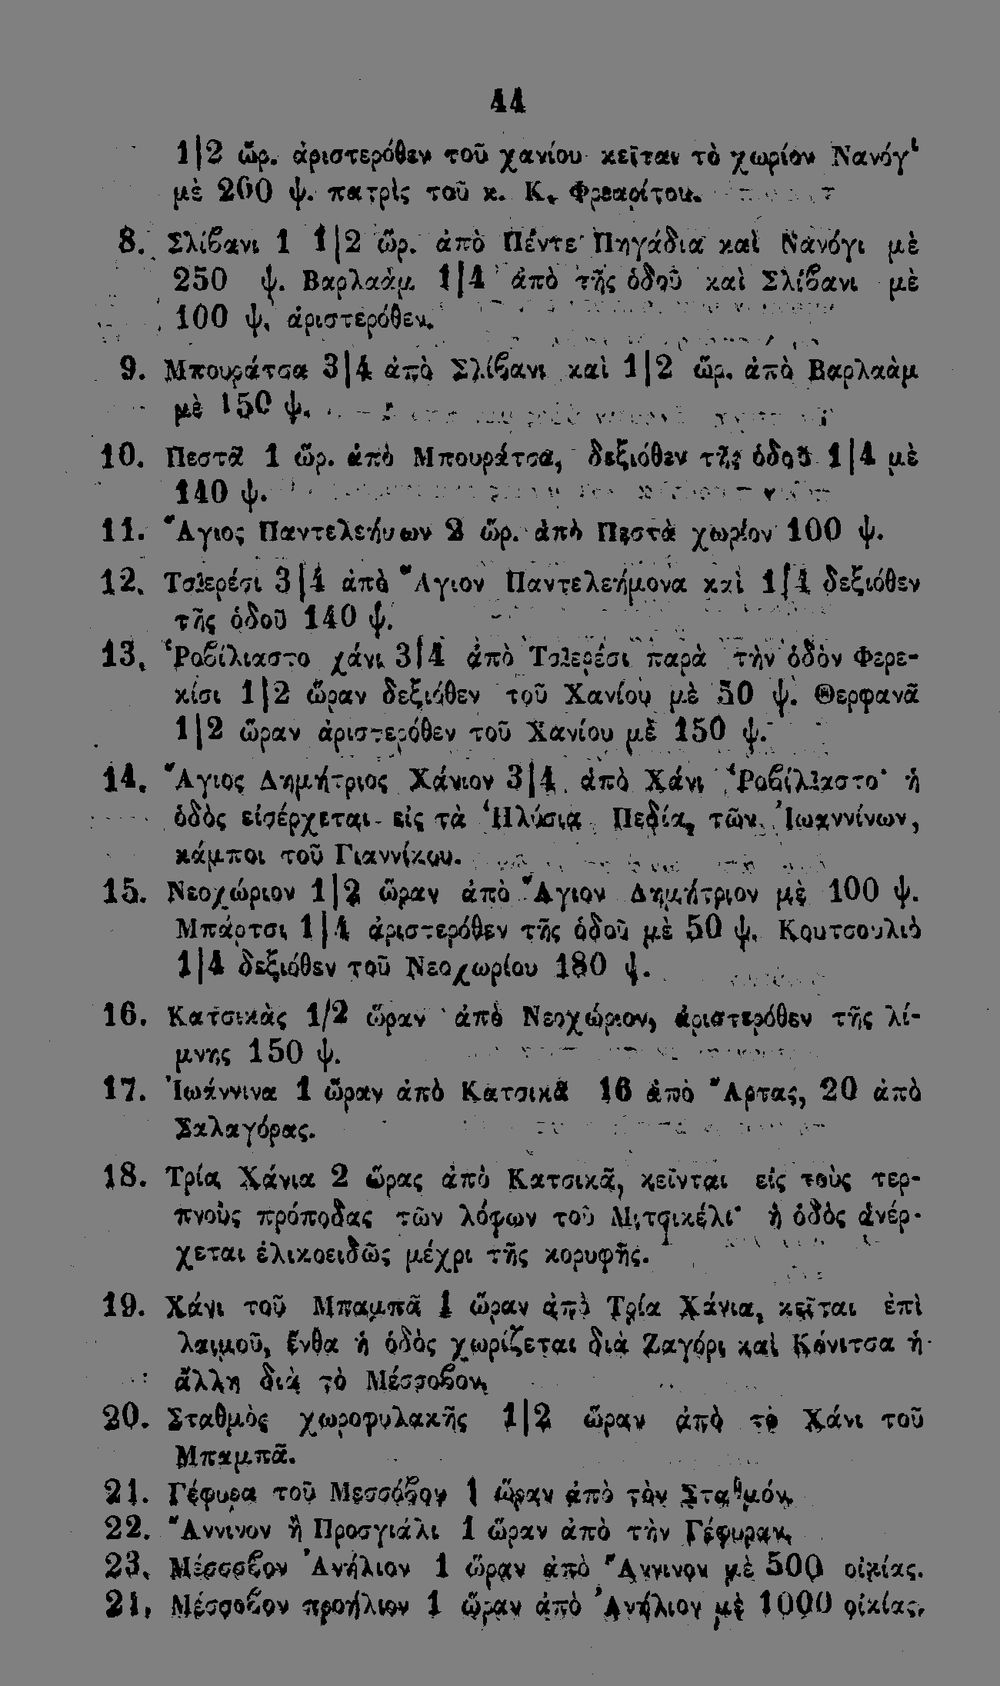 44
1|2 ὥρ. ἀριστερόθεν τοῦ χανίου κεῖται τὸ χωρίον Νανόγι
μὲ 200 ψ. πατρὶς τοῦ κ. Κ. Φρεαρίτου.
8. Σλίβανι 1 1|2 ὥρ. ἀπὸ Πέντε Πηγάδια καὶ Νανόγι μὲ
250 ψ. Βαρλαὰμ 1|4 ἀπὸ τῆς ὁδοῦ καὶ Σλίβανι μὲ
100 ψ. ἀριστερόθεν.
9. Μπουράτσα 3|4 ἀπὸ Σλίβανι καὶ 1|2 ὥρ. ἀπὸ Βαρλαὰμ
μὲ 150 ψ.
10. Πεστὰ 1 ὥρ. ἀπὸ Μπουράτσα, δεξιόθεν τῆς ὁδοῦ 1|4 μὲ
140 ψ.
11. Ἅγιος Παντελεήμων 2 ὥρ. ἀπὸ Πεστὰ χωρίον 100 ψ.
12. Τσλερέσι 3|4 ἀπὸ Ἅγιον Παντελεήμονα καὶ 1|4 δεξιόθεν
τῆς ὁδοῦ 140 ψ.
13. Ῥοβίλιαστο χάνι 3|4 ἀπὸ Τσλερέσι παρὰ τὴν ὁδὸν Φερε-
κίσι 1|2 ὥραν δεξιόθεν τοῦ Χανίου μὲ 50 ψ. Θερφανᾶ
1|2 ὥραν ἀριστερόθεν τοῦ Χανίου μὲ 150 ψ.
14. Ἅγιος Δημήτριος Χάνιον 3|4 ἀπὸ Χάνι Ῥοβίλλαστο· ἡ
ὁδὸς εἰσέρχεται εἰς τὰ Ἡλύσια Πεδία, τῶν Ἰωαννίνων,
κάμποι τοῦ Γιαννίκου.
15. Νεοχώριον 1|2 ὥραν ἀπὸ Ἅγιον Δημήτριον μὲ 100 ψ.
Μπάρτσι 1|4 ἀριστερόθεν τῆς ὁδοῦ μὲ 50 ψ. Κουτσουλιὸ
1|4 δεξιόθεν τοῦ Νεοχωρίου 180 ψ.
16. Κατσικὰς 1/2 ὥραν ἀπὸ Νεοχώριον, ἀριστερόθεν τῆς λί-
μνης 150 ψ.
17. Ἰωάννινα 1 ὥραν ἀπὸ Κατσικᾶ 16 ἀπὸ Ἄρτας, 20 ἀπὸ
Σαλαγόρας.
18. Τρία Χάνια 2 ὥρας ἀπὸ Κατσικᾶ, κεῖνται εἰς τοὺς τερ-
πνοὺς πρόποδας τῶν λόφων τοῦ Μιτσικέλι· ἡ ὁδὸς ἀνέρ-
χεται ἑλικοειδῶς μέχρι τῆς κορυφῆς.
19. Χάνι τοῦ Μπαμπᾶ 1 ὥραν ἀπὸ Τρία Χάνια, κεῖται ἐπὶ
λαιμοῦ, ἔνθα ἡ ὁδὸς χωρίζεται διὰ Ζαγόρι καὶ Κόνιτσα ἡ
ἄλλη διὰ τὸ Μέσσοβον.
20. Σταθμὸς χωροφυλακῆς 1|2 ὥραν ἀπὸ τὸ Χάνι τοῦ
Μπαμπᾶ.
21. Γέφυρα τοῦ Μεσσόβου 1 ὥραν ἀπὸ τὸν Σταθμόν.
22. Ἄννινον ἢ Προσγιάλι 1 ὥραν ἀπὸ τὴν Γέφυραν.
23. Μέσσοβον Ἀνήλιον 1 ὥραν ἀπὸ Ἄννινον μὲ 500 οἰκίας.
24. Μέσσοβον προήλιον 1 ὥραν ἀπὸ Ἀνήλιον μὲ 1000 οἰκίας.